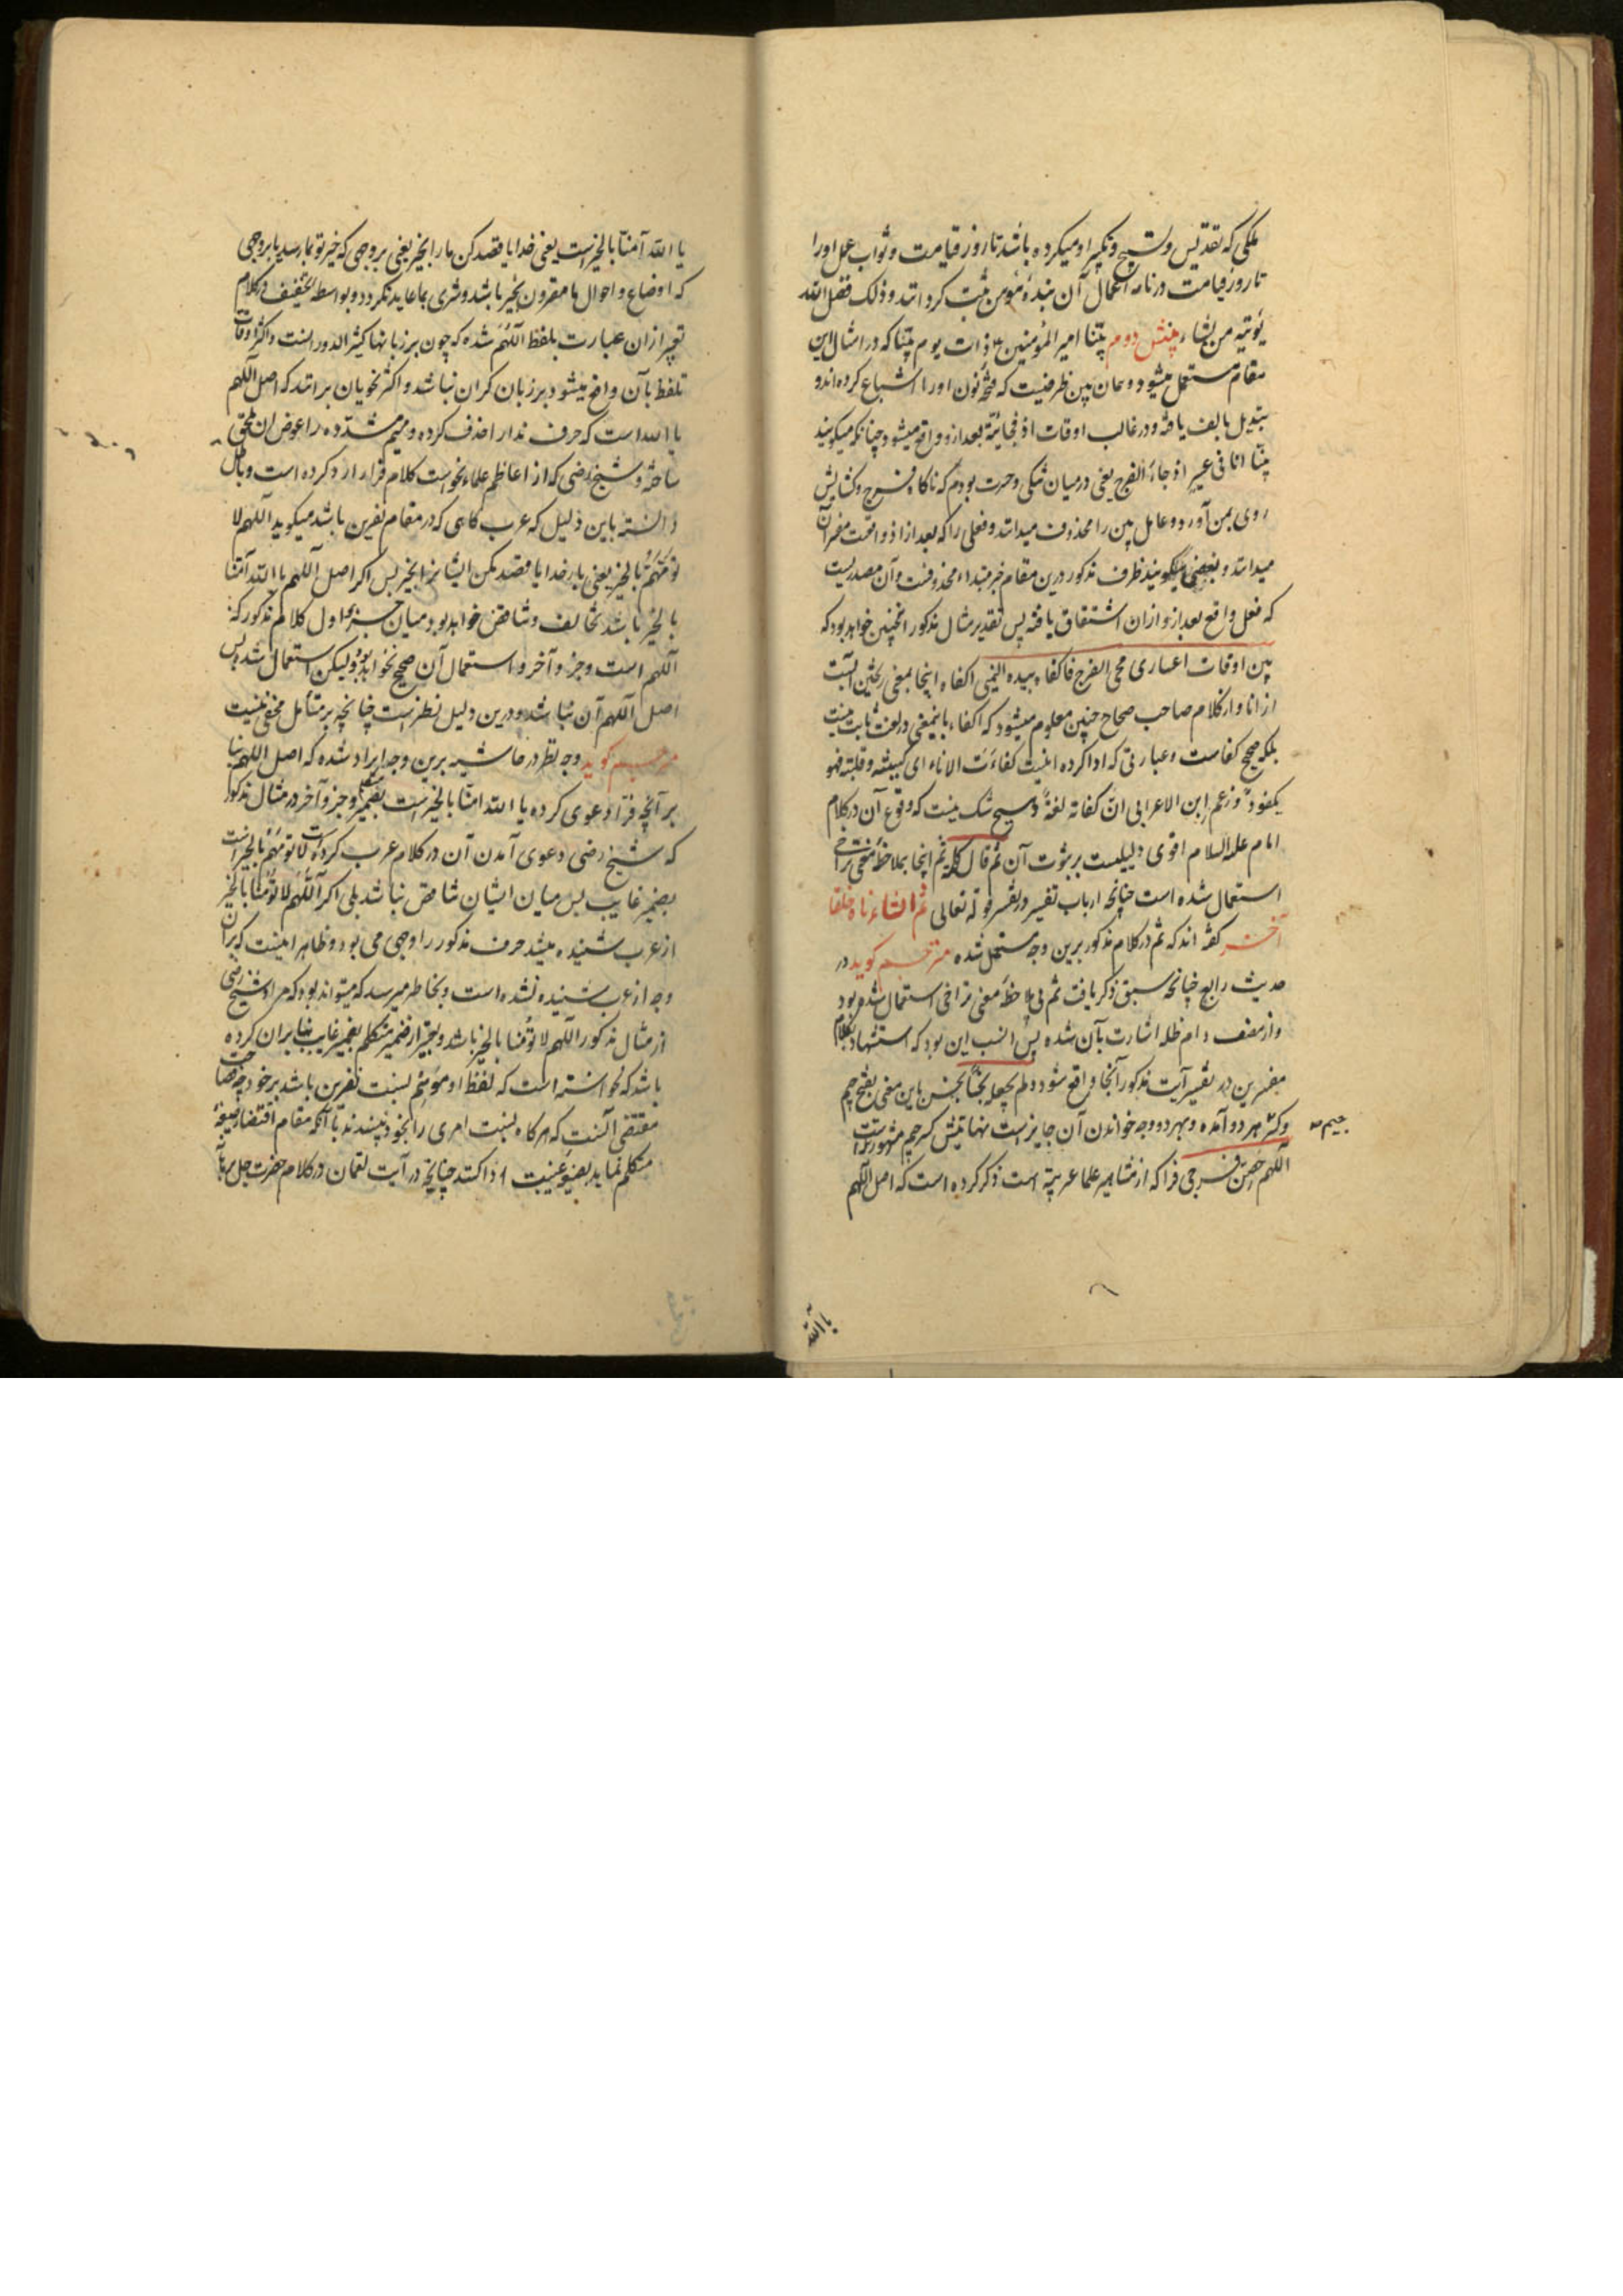 ملکی که تقدیس و تسبیح و تکبیر او میکرده باشد تا روز قیامت و ثواب عمل او را
تا روز قیامت در نامه اعمال آن بنده مؤمن ثبت کردانند و ذلک فضل الله
یؤتیه من یشاء بینش دوم بینا امیر المؤمنین ع ذات یوم بینا که در امثال این
مقام مستعمل میشود همان بین ظرفیت که فتحه نون او را اشباع کرده اند و
تبدیل بالف یافته و در غالب اوقات اذ فجائیه بعد ازو واقع میشود چنانکه میکویند
بینا انا فی عسر اذ جاء الفرج یعنی در میان تنکی و عسرت بودم که ناکاه فرج و کشایش
روی بمن آورد و عامل بین را محذوف میدانند و فعلی را که بعد از اذ واقعست مفسر آن
میدانند و بعضی میکویند ظرف مذکور درین مقام خبر مبتداء محذوفست و آن مصدریست
که فعل واقع بعد ازو ازان اشتقاق یافته پس تقدیر مثال مذکور اینچنین خواهد بود که
بین اوقات اعساری مجی الفرج فاکفاه بیده الیمنی اکفاء اینجا بمعنی ریختن آبست
از انا و از کلام صاحب صحاح چنین معلوم میشود که اکفاء باینمعنی در لغت ثابت نیست
بلکه صحیح کفاست و عبارتی که ادا کرده اینست کفاءت الاناء ای کببته و قلبته فهو
مکفوء و زعم ابن الاعرابی ان اکفاته لغة و هیچ شک نیست که وقوع آن در کلام
امام علیه السلام اقوی دلیلیست بر ثبوت آن ثم قال کلمه ثم اینجا بملاحظه معنی تراخی
استعمال شده است چنانچه ارباب تفسیر در تفسیر قوله تعالی ثم انشاءناه خلقا
آخر کفته اند که ثم در کلام مذکور برین وجه مستعمل شده مترجم کوید در
حدیث رابع چنانچه سبق ذکر یافت ثم بی ملاحظه معنی تراخی استعمال شده بود
و از مصنف دام ظله اشارت بآن شده پس انسب این بود که استشهاد بکلام
مفسرین در تفسیر آیت مذکور آنجا واقع شود و لم یجعله نجسا نجس باین معنی بفتح جیم
و کسر هر دو آمده و بهر دو وجه خواندن آن جایز است نهایتش کسر جیم مشهورتر است
جیم صح
اللهم حصن فرجی فرا که از مشاهیر علماء عربیه است ذکر کرده است که اصل اللهم
یا الله
یا الله آمنا بالخیرست یعنی خدایا قصد کن ما را بخیر یعنی بروجهی که خیر تو بما رسد یا بروجهی
که اوضاع و احوال ما مقرون بخیر باشد و شری بما عاید نکردد و بواسطه تخفیف در کلام
تعبیر ازان عبارت بلفظ اللهم شده که چون بر زبانها کثیر الدور است و اکثر اوقات
تلفظ بآن واقع میشود بر زبان کران نباشد و اکثر نحویان برانند که اصل اللهم
یا الله است که حرف ندا را حذف کرده و میم مشدده را عوض ان ملحق
ساخته و شیخ رضی که از اعاظم علماء نحو است کلام فرا را رد کرده است و باطل
دانسته باین دلیل که عرب کاهی که در مقام نفرین باشد میکوید اللهم لا
تؤمهم بالخیر یعنی بار خدایا قصد مکن ایشانرا بخیر پس اکر اصل اللهم یا الله آمنا
بالخیر باشد تخالف و تناقض خواهد بود میان جزء اول کلام مذکور که
اللهم است و جزء آخر و استعمال آن صحیح نخواهد بود ولیکن استعمال شد پس
اصل اللهم آن نباشد و درین دلیل نظر است چنانچه بر متأمل مخفی نیست
مترجم کوید وجه نظر در حاشیه برین وجه ایراد شده که اصل اللهم بنا
بر آنچه فرا دعوی کرده یا الله امنا بالخیر است بضمیر متکلم و جزء آخر در مثال مذکور
که شیخ رضی دعوی آمدن آن در کلام عرب کرده است لا تؤمهم بالخیر است
بضمیر غایب پس میان ایشان تناقض نباشد بلی اکر اللهم لا تؤمنا بالخیر
از عرب شنیده میشد حرف مذکور را وجهی می بود و ظاهرا اینست که بر آن
وجه از عرب شنیده نشده است و بخاطر میرسد که میتواند بود که مراد شیخ رضی
از مثال مذکور اللهم لا تؤمنا بالخیر باشد و تعبیر از ضمیر متکلم بضمیر غایب بنا بران کرده
باشد که نخواسته است که لفظ او موهم نسبت نفرین باشد بر خود چه فصاحت
مقتضی آنست که هرکاه نسبت امری را بخود نپسندند با آنکه مقام اقتضاء صیغه
متکلم نماید بصیغه غیبت ادا کنند چنانچه در آیت لقمان در کلام حضرت جل برهانه